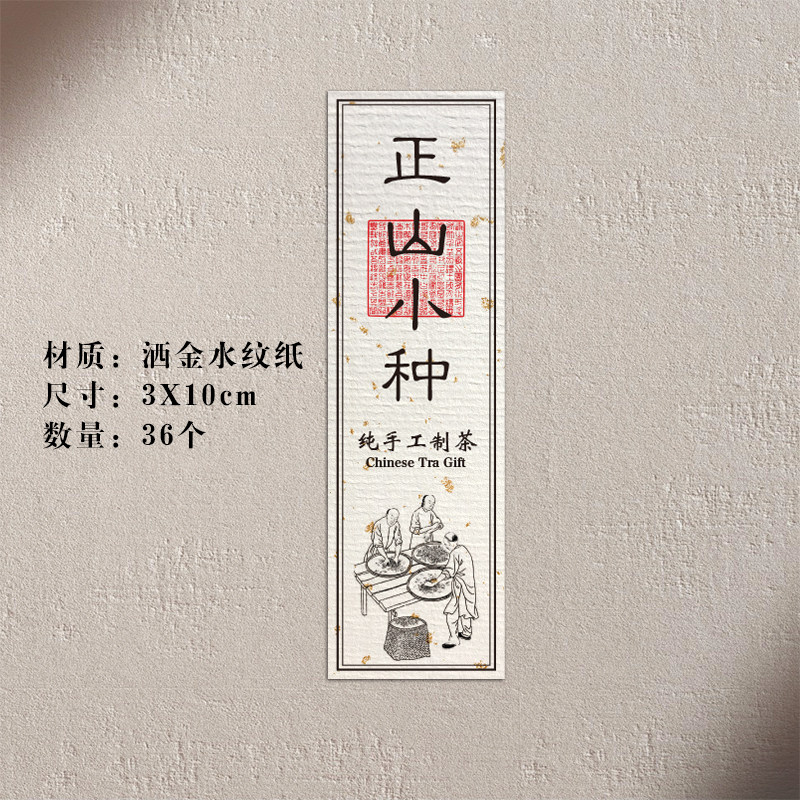 材质：洒金水纹纸
尺寸：3X10cm
数量：36个
正山小种
纯手工制茶
Chinese Tra Gift